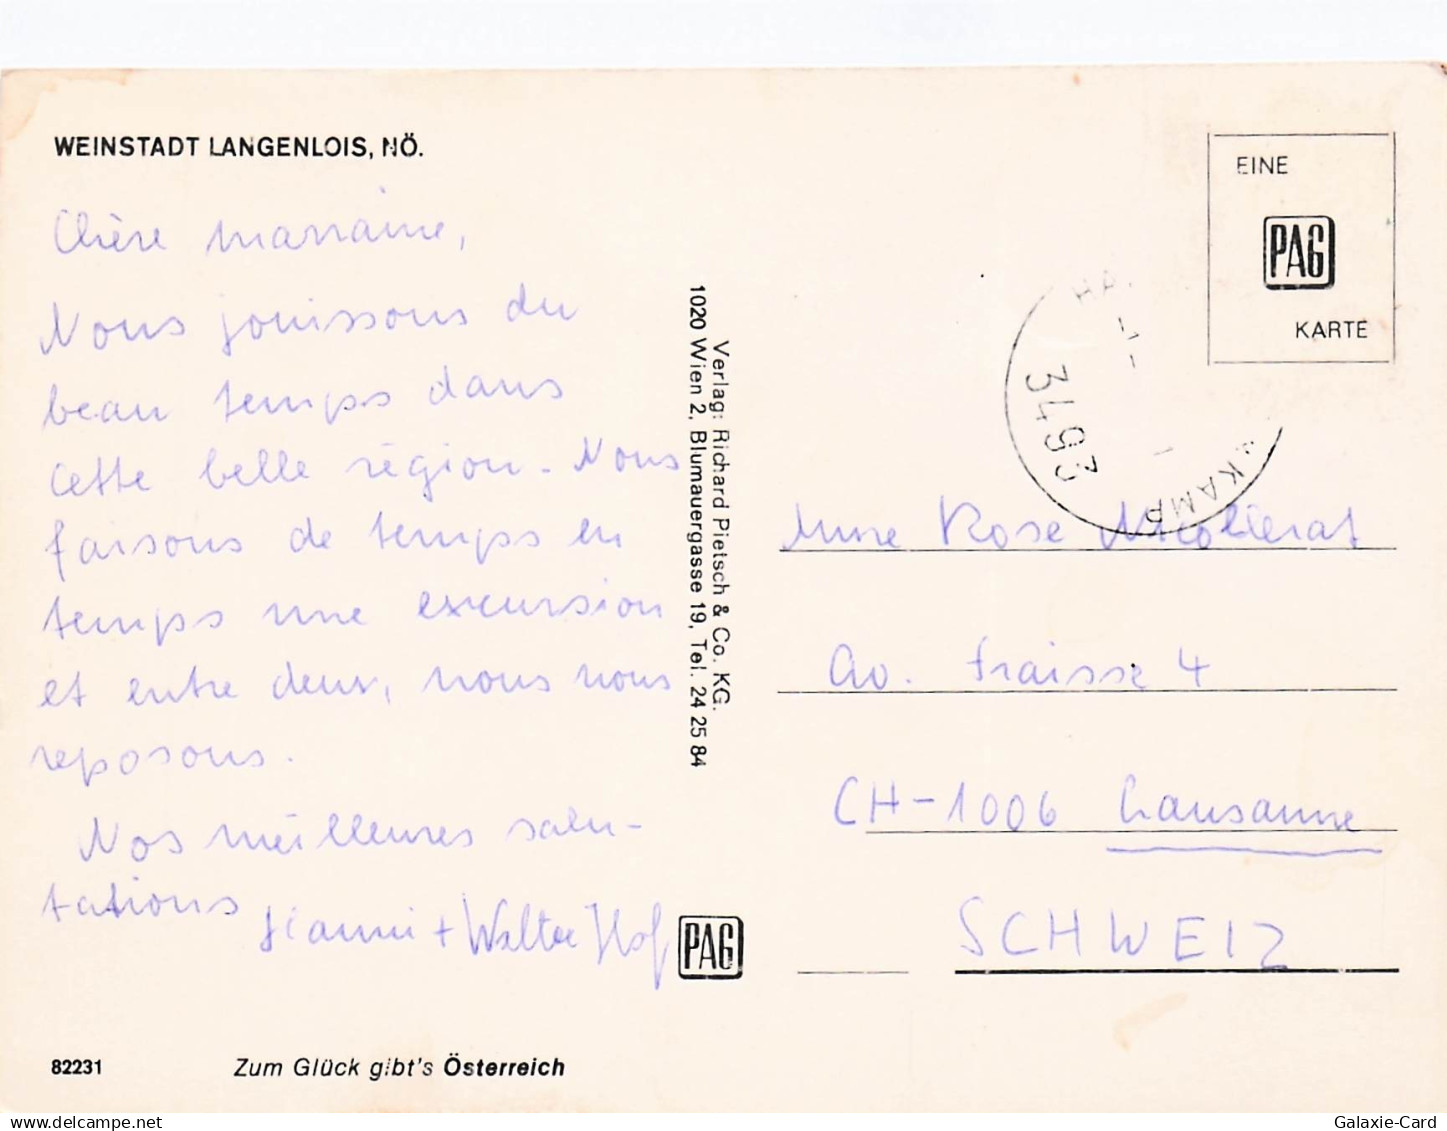 WEINSTADT LANGENLOIS, NÖ.
Chère marraine,
Nous jouissons du
beau temps dans
cette belle région. Nous
faisons de temps en
temps une excursion
et entre deux, nous nous
reposons.
Nos meilleures salu-
tations
Hanni + Walter Hof
82231
Zum Glück gibt's Österreich
Verlag: Richard Pietsch & Co. KG.
1020 Wien 2, Blumauergasse 19, Tel. 24 25 84
PAG
EINE
PAG
KARTE
3493
KAMP
Mme Rose Nicollerat
Av. Fraisse 4
CH-1006 Lausanne
SCHWEIZ
delcampe.net
Galaxie-Card